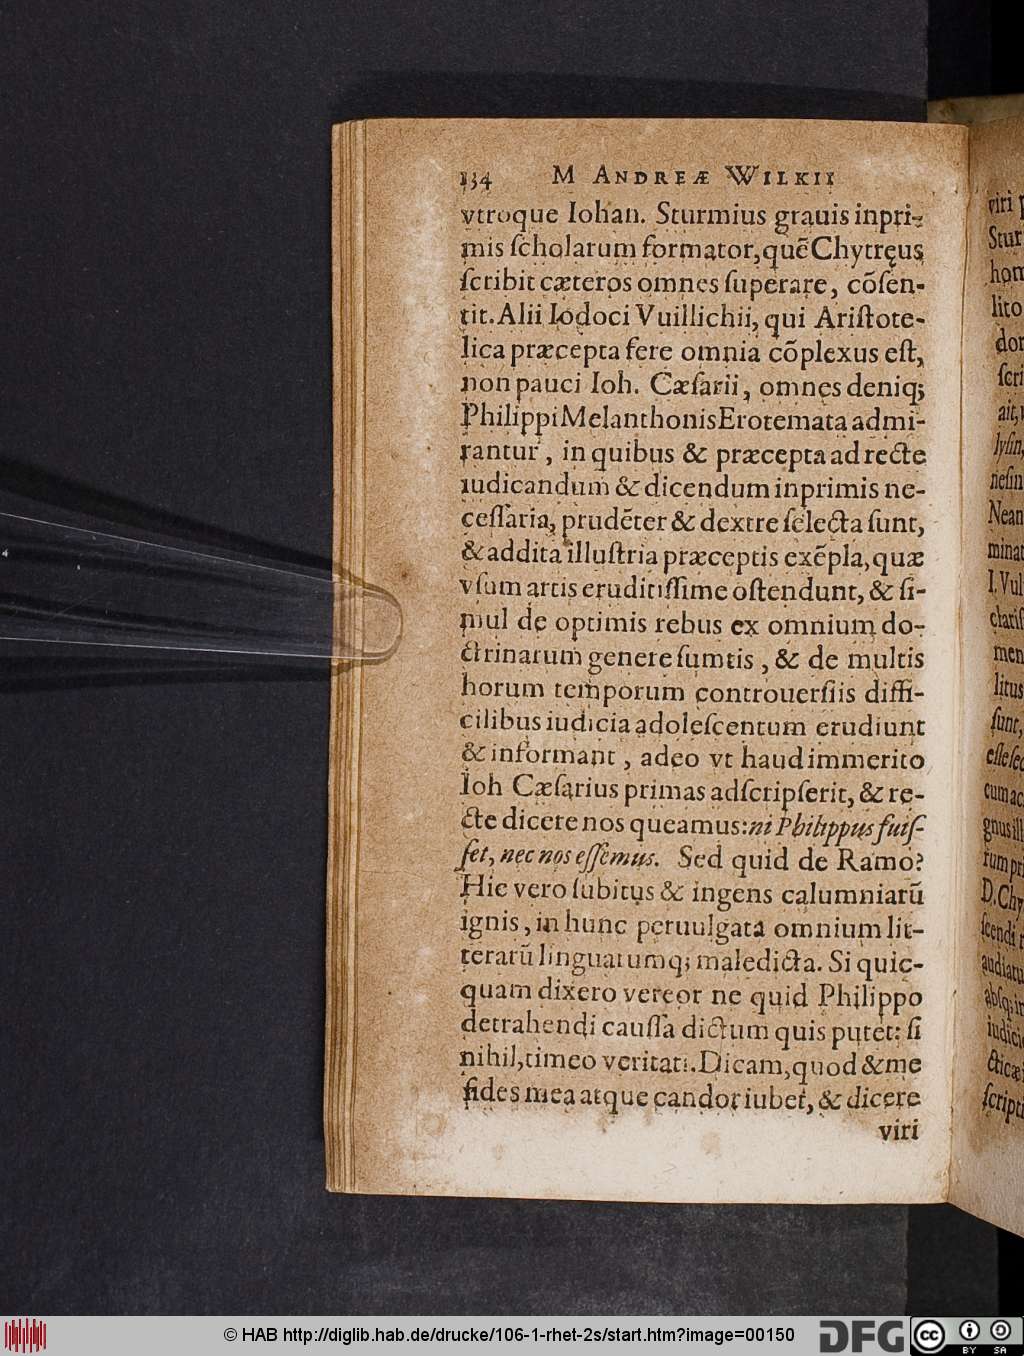 134 M ANDREÆ WILKII
vtroque Iohan. Sturmius grauis inpri-
mis ſcholarum formator, quẽ Chytręus
ſcribit cæteros omnes ſuperare, cõſen-
tit. Alii Iodoci Vuillichii, qui Ariſtote-
lica præcepta fere omnia cõplexus eſt,
non pauci Ioh. Cæſarii, omnes deniq;
Philippi Melanthonis Erotemata admi-
rantur, in quibus & præcepta ad recte
iudicandum & dicendum inprimis ne-
ceſſaria, prudẽter & dextre ſelecta ſunt,
& addita illuſtria præceptis exẽpla, quæ
vſum artis eruditiſſime oſtendunt, & ſi-
mul de optimis rebus ex omnium do-
ctrinarum genere ſumtis, & de multis
horum temporum controuerſiis diffi-
cilibus iudicia adoleſcentum erudiunt
& informant, adeo vt haud immerito
Ioh Cæſarius primas adſcripſerit, & re-
cte dicere nos queamus: ni Philippus fuiſ-
ſet, nec nos eſſemus. Sed quid de Ramo?
Hic vero ſubitus & ingens calumniarũ
ignis, in hunc peruulgata omnium lit-
terarũ linguarumq; maledicta. Si quic-
quam dixero vereor ne quid Philippo
detrahendi cauſſa dictum quis putet: ſi
nihil, timeo veritati. Dicam, quod & me
fides mea atque candor iubet, & dicere
viri
viri
Stur
hom
lito
dor
ſcri
ait,
lyſin,
neſin
Nean
minat
I. Vul
clariſ
men
litus
ſunt,
eſſe ſec
cum ac
gnus ill
rum pri
D. Chy
ſcendi
audiatu
abſq; in
iudici
cticæ
ſcripti
© HAB http://diglib.hab.de/drucke/106-1-rhet-2s/start.htm?image=00150
DFG
cc
BY SA